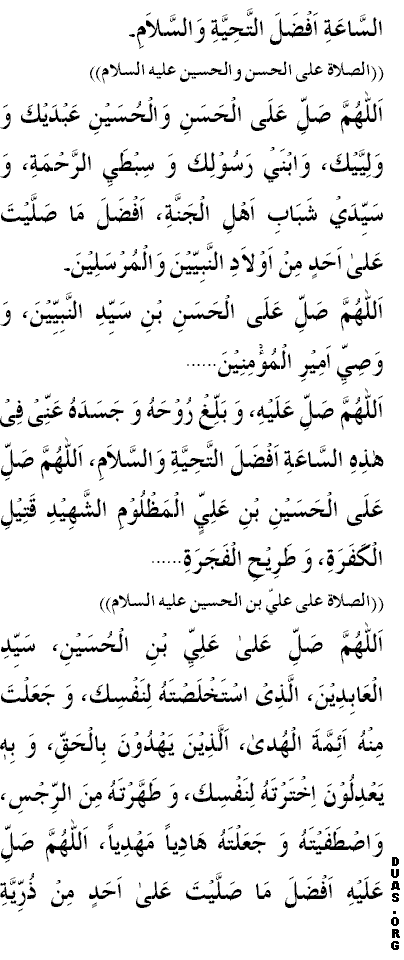 السَّاعَةِ اَفْضَلَ التَّحِيَّةِ وَ السَّلاَمِ۔
((الصلاة على الحسن و الحسين عليه السلام))
اَللّٰهُمَّ صَلِّ عَلَى الْحَسَنِ وَالْحُسَيْنِ عَبْدَيْكَ وَ
وَلِيَّيْكَ، وَابْنَيْ رَسُوْلِكَ وَ سِبْطَيِ الرَّحْمَةِ، وَ
سَيِّدَيْ شَبَابِ اَهْلِ الْجَنَّةِ، اَفْضَلَ مَا صَلَّيْتَ
عَلىٰ اَحَدٍ مِنْ اَوْلاَدِ النَّبِيِّيْنَ وَالْمُرْسَلِيْنَ۔
اَللّٰهُمَّ صَلِّ عَلَى الْحَسَنِ بْنِ سَيِّدِ النَّبِيِّيْنَ، وَ
وَصِيِّ اَمِيْرِ الْمُؤْمِنِيْنَ......
اَللّٰهُمَّ صَلِّ عَلَيْهِ، وَ بَلِّغْ رُوْحَهُ وَ جَسَدَهُ عَنِّيْ فِيْ
هٰذِهِ السَّاعَةِ اَفْضَلَ التَّحِيَّةِ وَالسَّلاَمِ، اَللّٰهُمَّ صَلِّ
عَلَى الْحُسَيْنِ بْنِ عَلِيٍّ الْمَظْلُوْمِ الشَّهِيْدِ قَتِيْلِ
الْكَفَرَةِ، وَ طَرِيْحِ الْفَجَرَةِ......
((الصلاة على عليّ بن الحسين عليه السلام))
اَللّٰهُمَّ صَلِّ عَلىٰ عَلِيِّ بْنِ الْحُسَيْنِ، سَيِّدِ
الْعَابِدِيْنَ، الَّذِيْ اسْتَخْلَصْتَهُ لِنَفْسِكَ، وَ جَعَلْتَ
مِنْهُ اَئِمَّةَ الْهُدىٰ، اَلَّذِيْنَ يَهْدُوْنَ بِالْحَقِّ، وَ بِهٖ
يَعْدِلُوْنَ اِخْتَرْتَهُ لِنَفْسِكَ، وَ طَهَّرْتَهُ مِنَ الرِّجْسِ،
وَاصْطَفَيْتَهُ وَ جَعَلْتَهُ هَادِياً مَهْدِياً، اَللّٰهُمَّ صَلِّ
عَلَيْهِ اَفْضَلَ مَا صَلَّيْتَ عَلىٰ اَحَدٍ مِنْ ذُرِّيَّةِ
DUAS.ORG